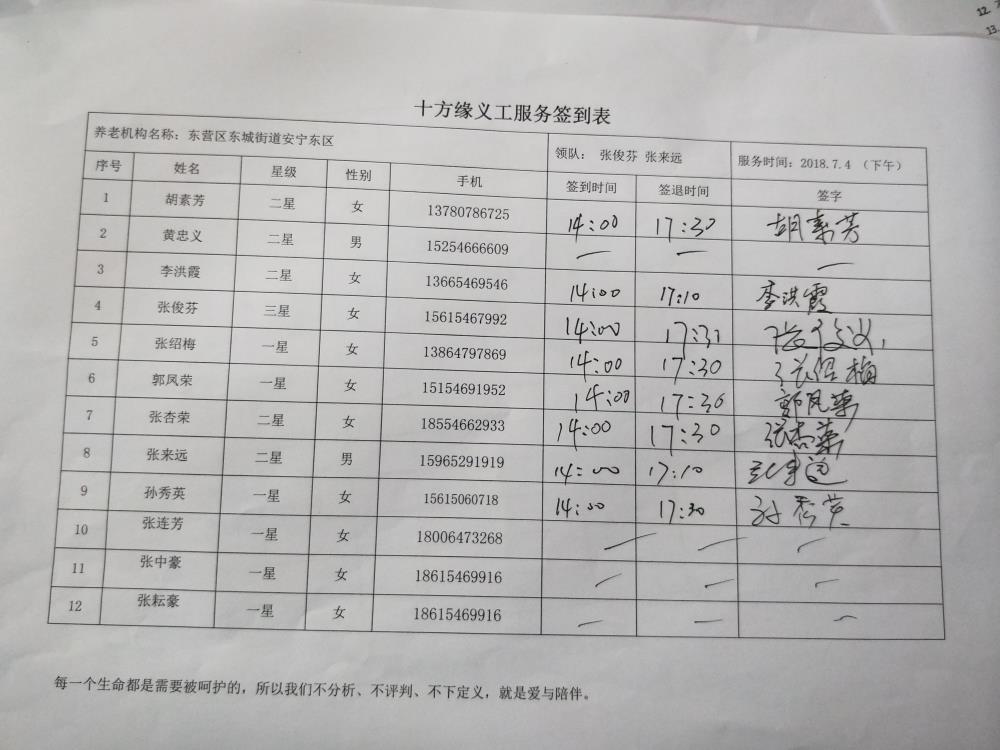 12.
13.
十方缘义工服务签到表
养老机构名称：东营区东城街道安宁东区 领队： 张俊芬 张来远 服务时间：2018.7.4 （下午）
序号 姓名 星级 性别 手机 签到时间 签退时间 签字
1 胡素芳 二星 女 13780786725 14:00 17:30 胡素芳
2 黄忠义 二星 男 15254666609 — — —
3 李洪霞 二星 女 13665469546 14:00 17:10 李洪霞
4 张俊芬 三星 女 15615467992 14:00 17:31
5 张绍梅 一星 女 13864797869 14:00 17:30 张绍梅
6 郭凤荣 一星 女 15154691952 14:00 17:30 郭凤荣
7 张杏荣 二星 女 18554662933 14:00 17:30 张杏荣
8 张来远 二星 男 15965291919 14:00 17:10 张来远
9 孙秀英 一星 女 15615060718 14:00 17:30 孙秀英
10 张连芳 一星 女 18006473268 — — —
11 张中豪 一星 女 18615469916 — — —
12 张耘豪 一星 女 18615469916 — — —
每一个生命都是需要被呵护的，所以我们不分析、不评判、不下定义，就是爱与陪伴。